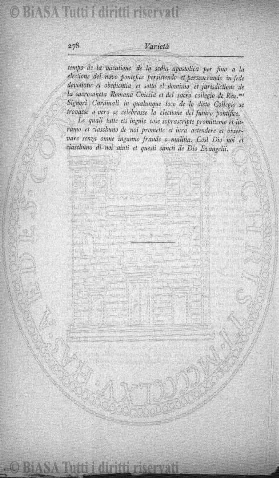 © BiASA Tutti i diritti riservati
278 Varietà
tempo de la vacatione de la sedia apostolica per fine a la
electione del novo pontefice persistendo et perseverando in fede
devotione et obedientia et sotto el dominio et jurisdictione de
la sacrosancta Romana Chiesia et del sacro collegio de Rev.mi
Signori Cardinali in qualunque loco de lo dicto Collegio se
trovasse a vero se celebrasse la electione del futuro pontifice.
Le quali tutte et singule cose soprascripte promittono et iu-
rano et ciaschuno de noi promette et iura attendere et osser-
vare senza omne inganno fraude o malitia. Cosi Dio noi et
ciaschuno di noi aiuti et questi sancti de Dio Evangelii.
© BiASA Tutti i diritti riservati